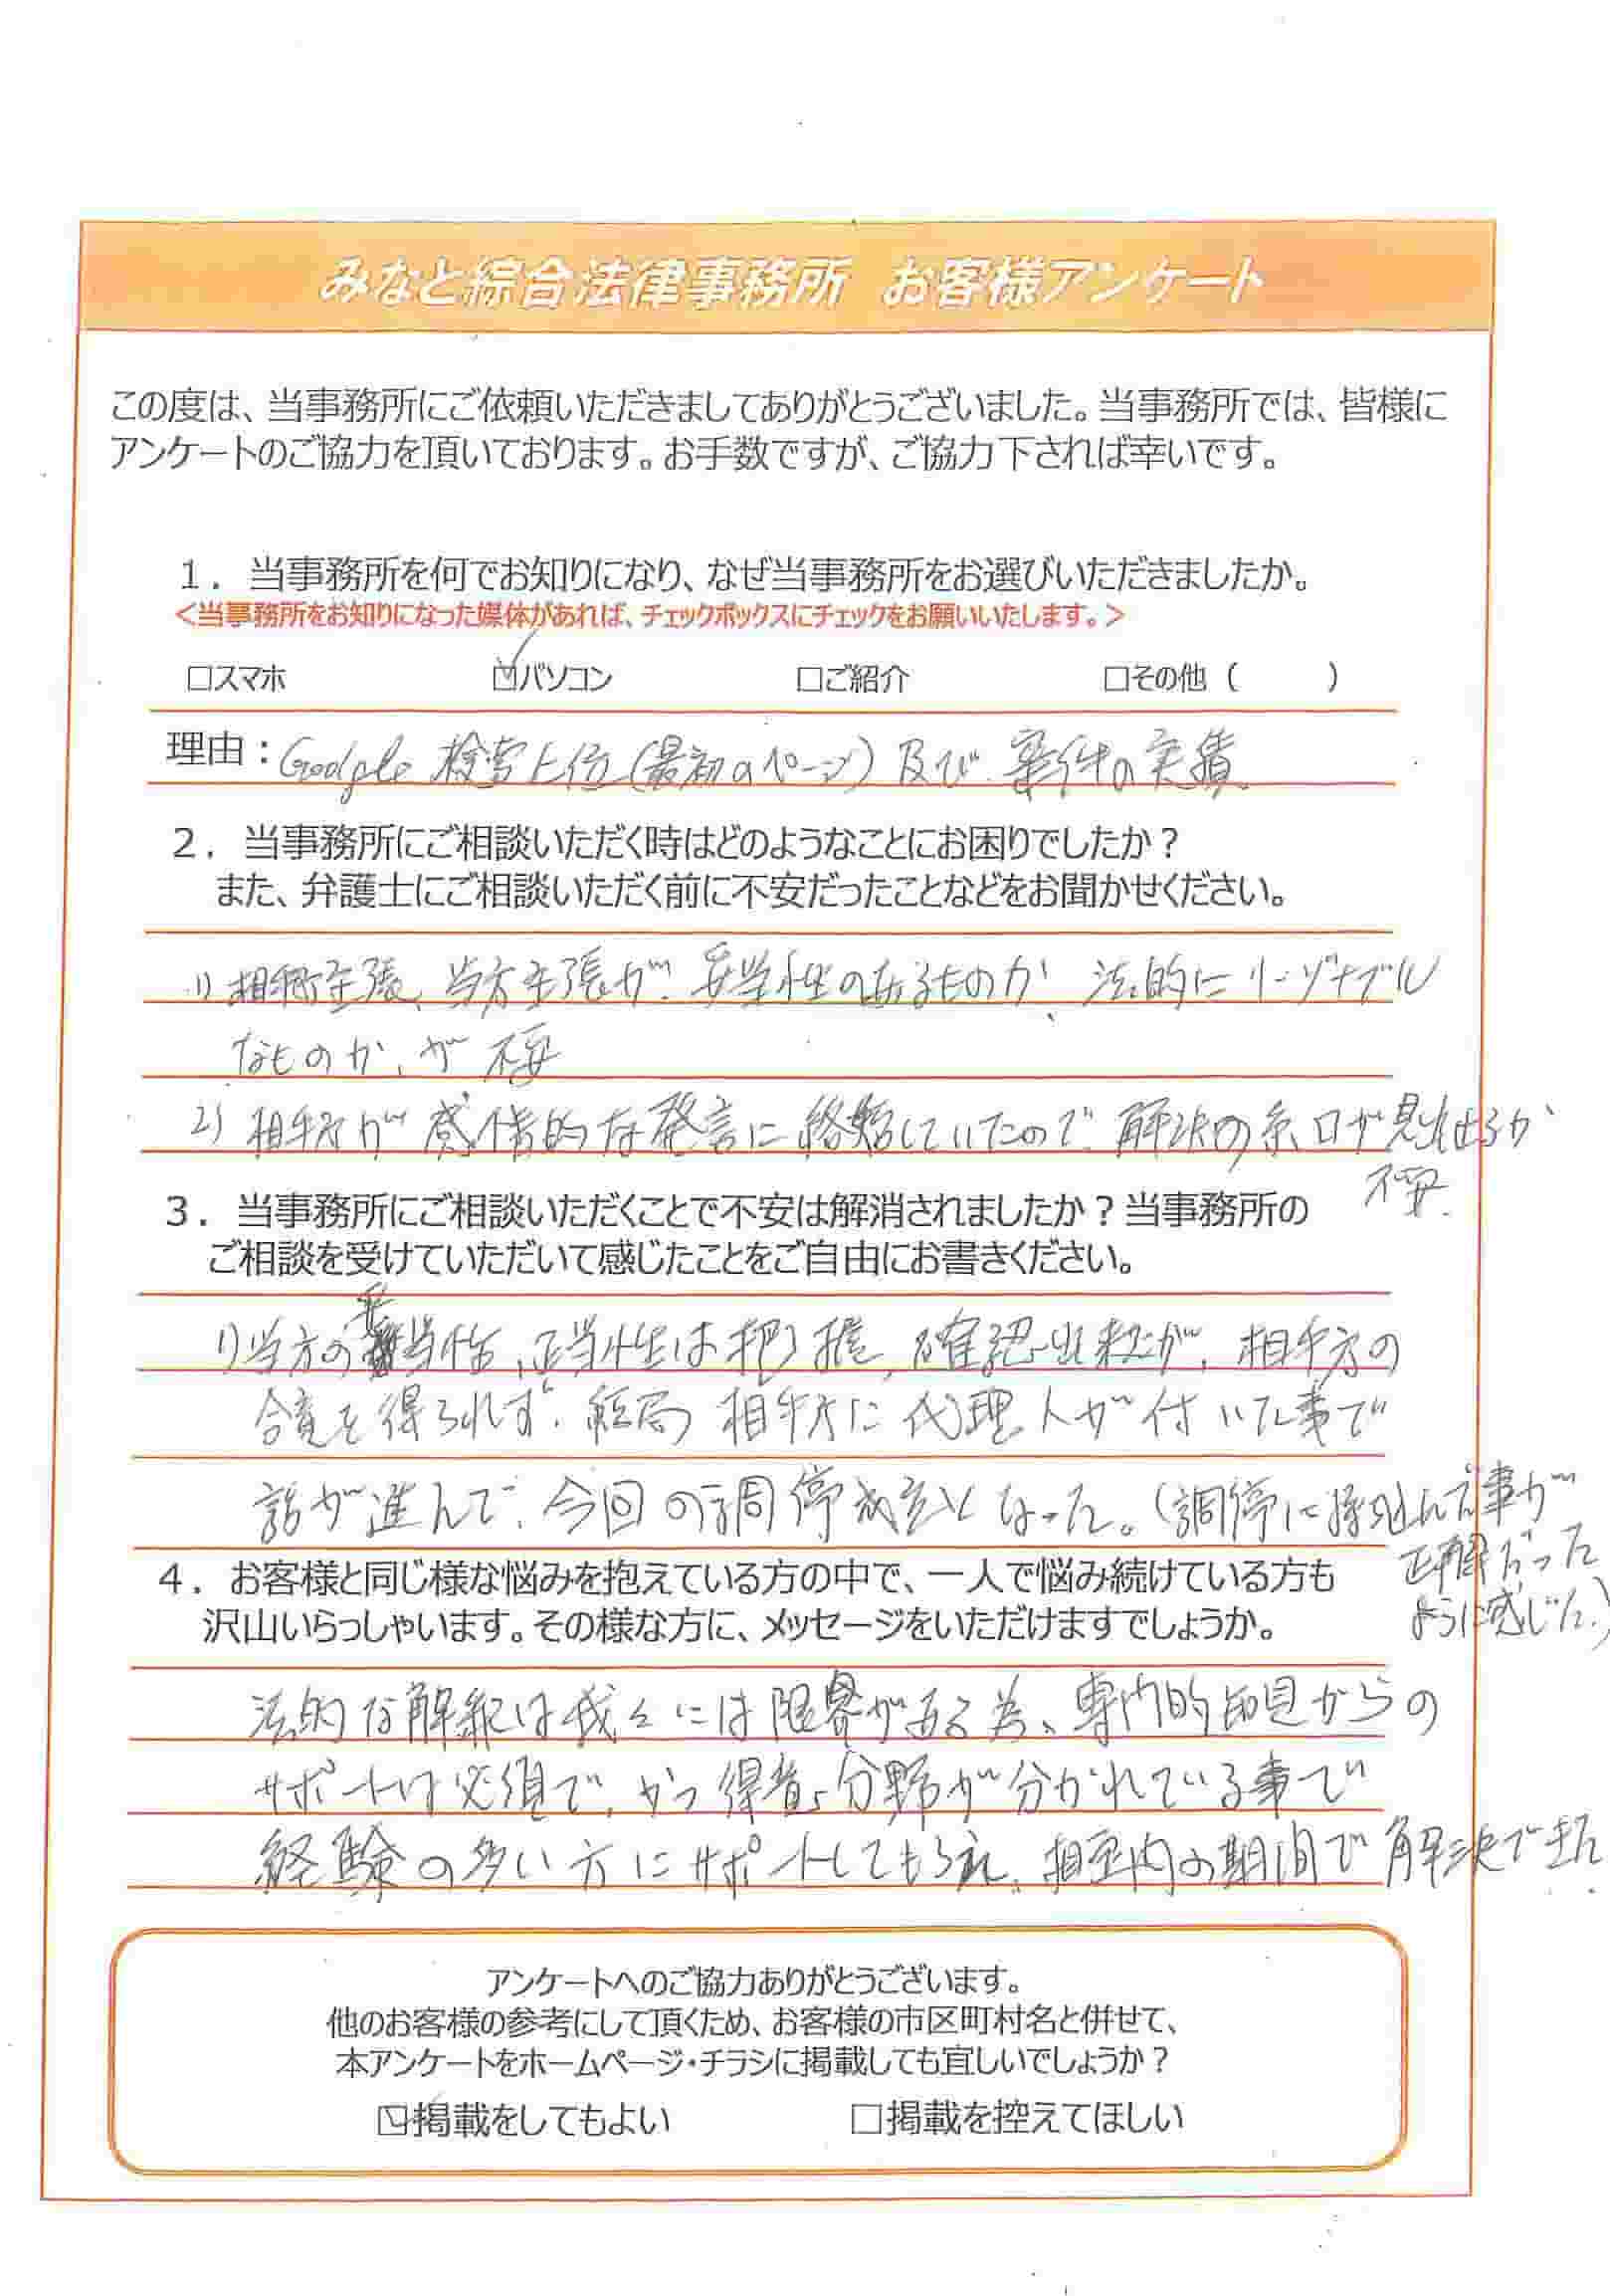 みなと綜合法律事務所 お客様アンケート
この度は、当事務所にご依頼いただきましてありがとうございました。当事務所では、皆様に
アンケートのご協力を頂いております。お手数ですが、ご協力下されば幸いです。
１．当事務所を何でお知りになり、なぜ当事務所をお選びいただきましたか。
＜当事務所をお知りになった媒体があれば、チェックボックスにチェックをお願いいたします。＞
□スマホ ☑パソコン □ご紹介 □その他（ ）
理由：Google 検索上位（最初のページ）及び、案件の実績
２．当事務所にご相談いただく時はどのようなことにお困りでしたか？
また、弁護士にご相談いただく前に不安だったことなどをお聞かせください。
1) 相手方主張、当方主張が、妥当性のあるものか、法的にリーゾナブル
なものか、が不安
2) 相手方が感情的な発言に終始していたので、解決の糸口が見出せるか
不安.
３．当事務所にご相談いただくことで不安は解消されましたか？当事務所の
ご相談を受けていただいて感じたことをご自由にお書きください。
1) 当方の妥当性、正当性は把握、確認出来たが、相手方の
合意を得られず、結局 相手方に代理人が付いた事で
話が進んで、今回の調停成立となった。（調停に持込んだ事が
正解だった
ように感じた。）
４．お客様と同じ様な悩みを抱えている方の中で、一人で悩み続けている方も
沢山いらっしゃいます。その様な方に、メッセージをいただけますでしょうか。
法的な解釈は我々には限界がある為、専門的知見からの
サポートは必須で、かつ得意分野が分かれている事で
経験の多い方にサポートしてもらえ、想定内の期間で解決できた
アンケートへのご協力ありがとうございます。
他のお客様の参考にして頂くため、お客様の市区町村名と併せて、
本アンケートをホームページ・チラシに掲載しても宜しいでしょうか？
☑掲載をしてもよい □掲載を控えてほしい